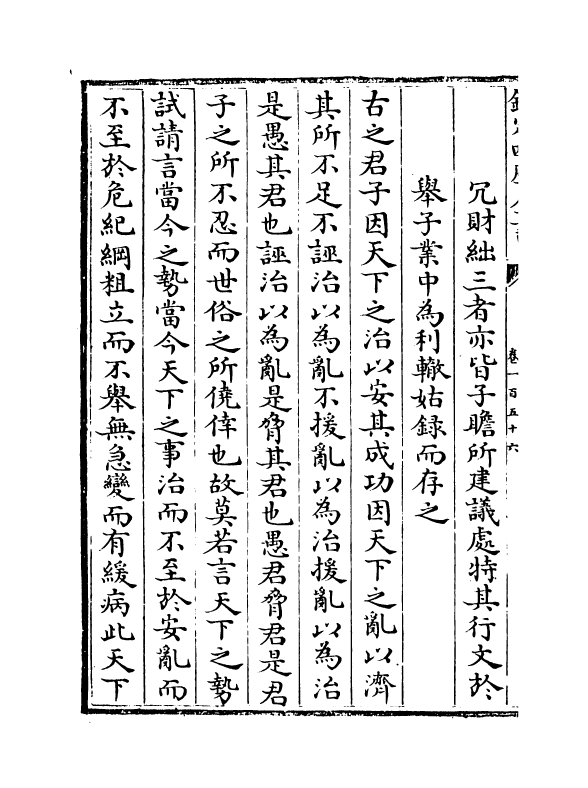 卷一百五十六
冗財絀三者亦皆子瞻所建議處特其行文於
舉子業中為利轍姑録而存之
古之君子因天下之治以安其成功因天下之亂以濟
其所不足不誣治以為亂不援亂以為治援亂以為治
是愚其君也誣治以為亂是脅其君也愚君脅君是君
子之所不忍而世俗之所僥倖也故莫若言天下之勢
試請言當今之勢當今天下之事治而不至於安亂而
不至於危紀綱粗立而不舉無急變而有緩病此天下